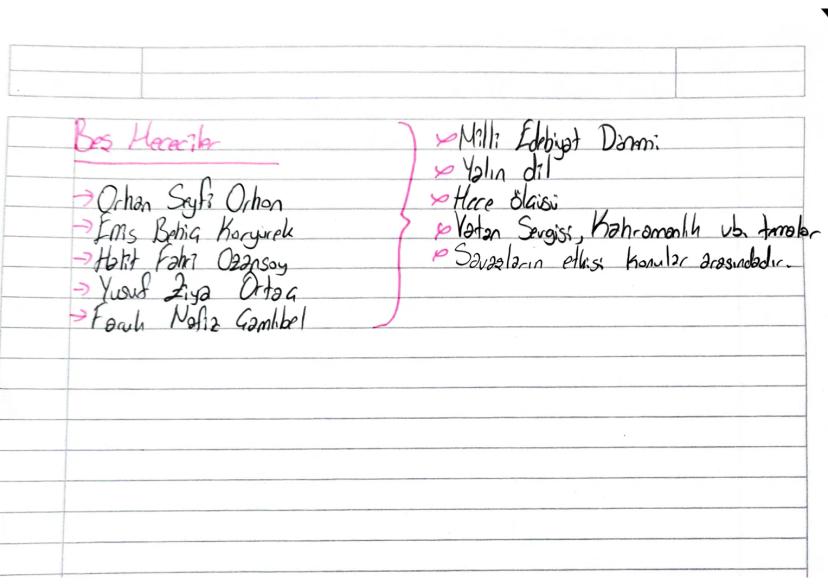 Beş Hececiler
→ Orhan Seyfi Orhon
→ Enis Behiç Koryürek
→ Halit Fahri Ozansoy
→ Yusuf Ziya Ortaç
→ Faruk Nafiz Çamlıbel
Milli Edebiyat Dönemi
Yalın dil
Hece ölçüsü
Vatan Sevgisi, Kahramanlık vb. temalar
Savaşların etkisi konular arasındadır.